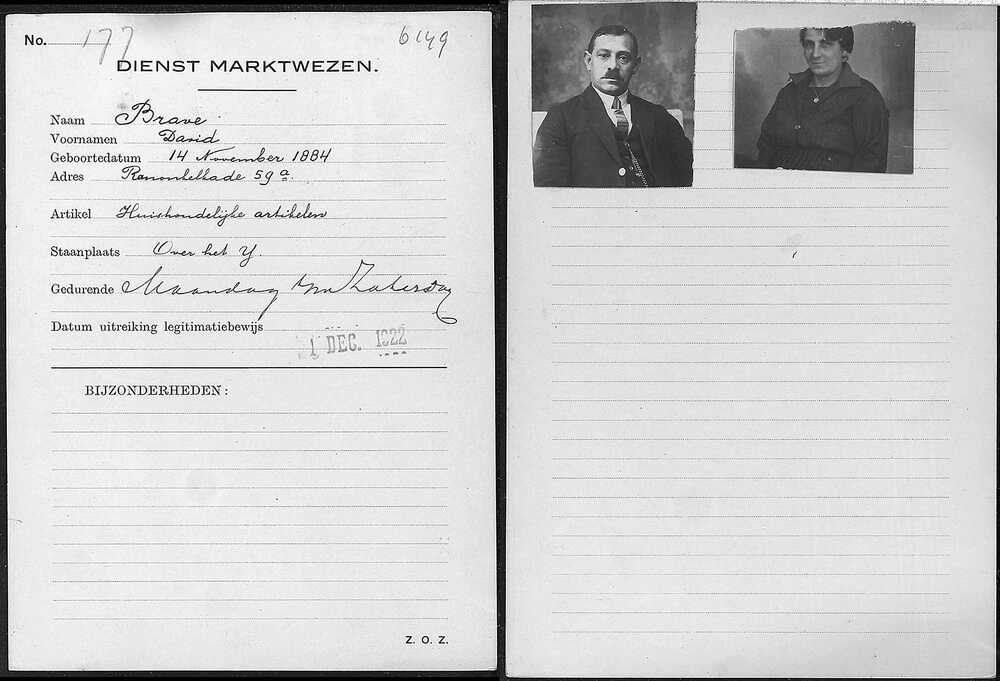 No. 177 6149
DIENST MARKTWEZEN.
Naam Brave
Voornamen David
Geboortedatum 14 November 1884
Adres Ranonkelkade 59a
Artikel Huishoudelijke artikelen
Staanplaats Over het Y.
Gedurende Maandag t/m Zaterdag
Datum uitreiking legitimatiebewijs
1 DEC. 1922
BIJZONDERHEDEN:
Z. O. Z.